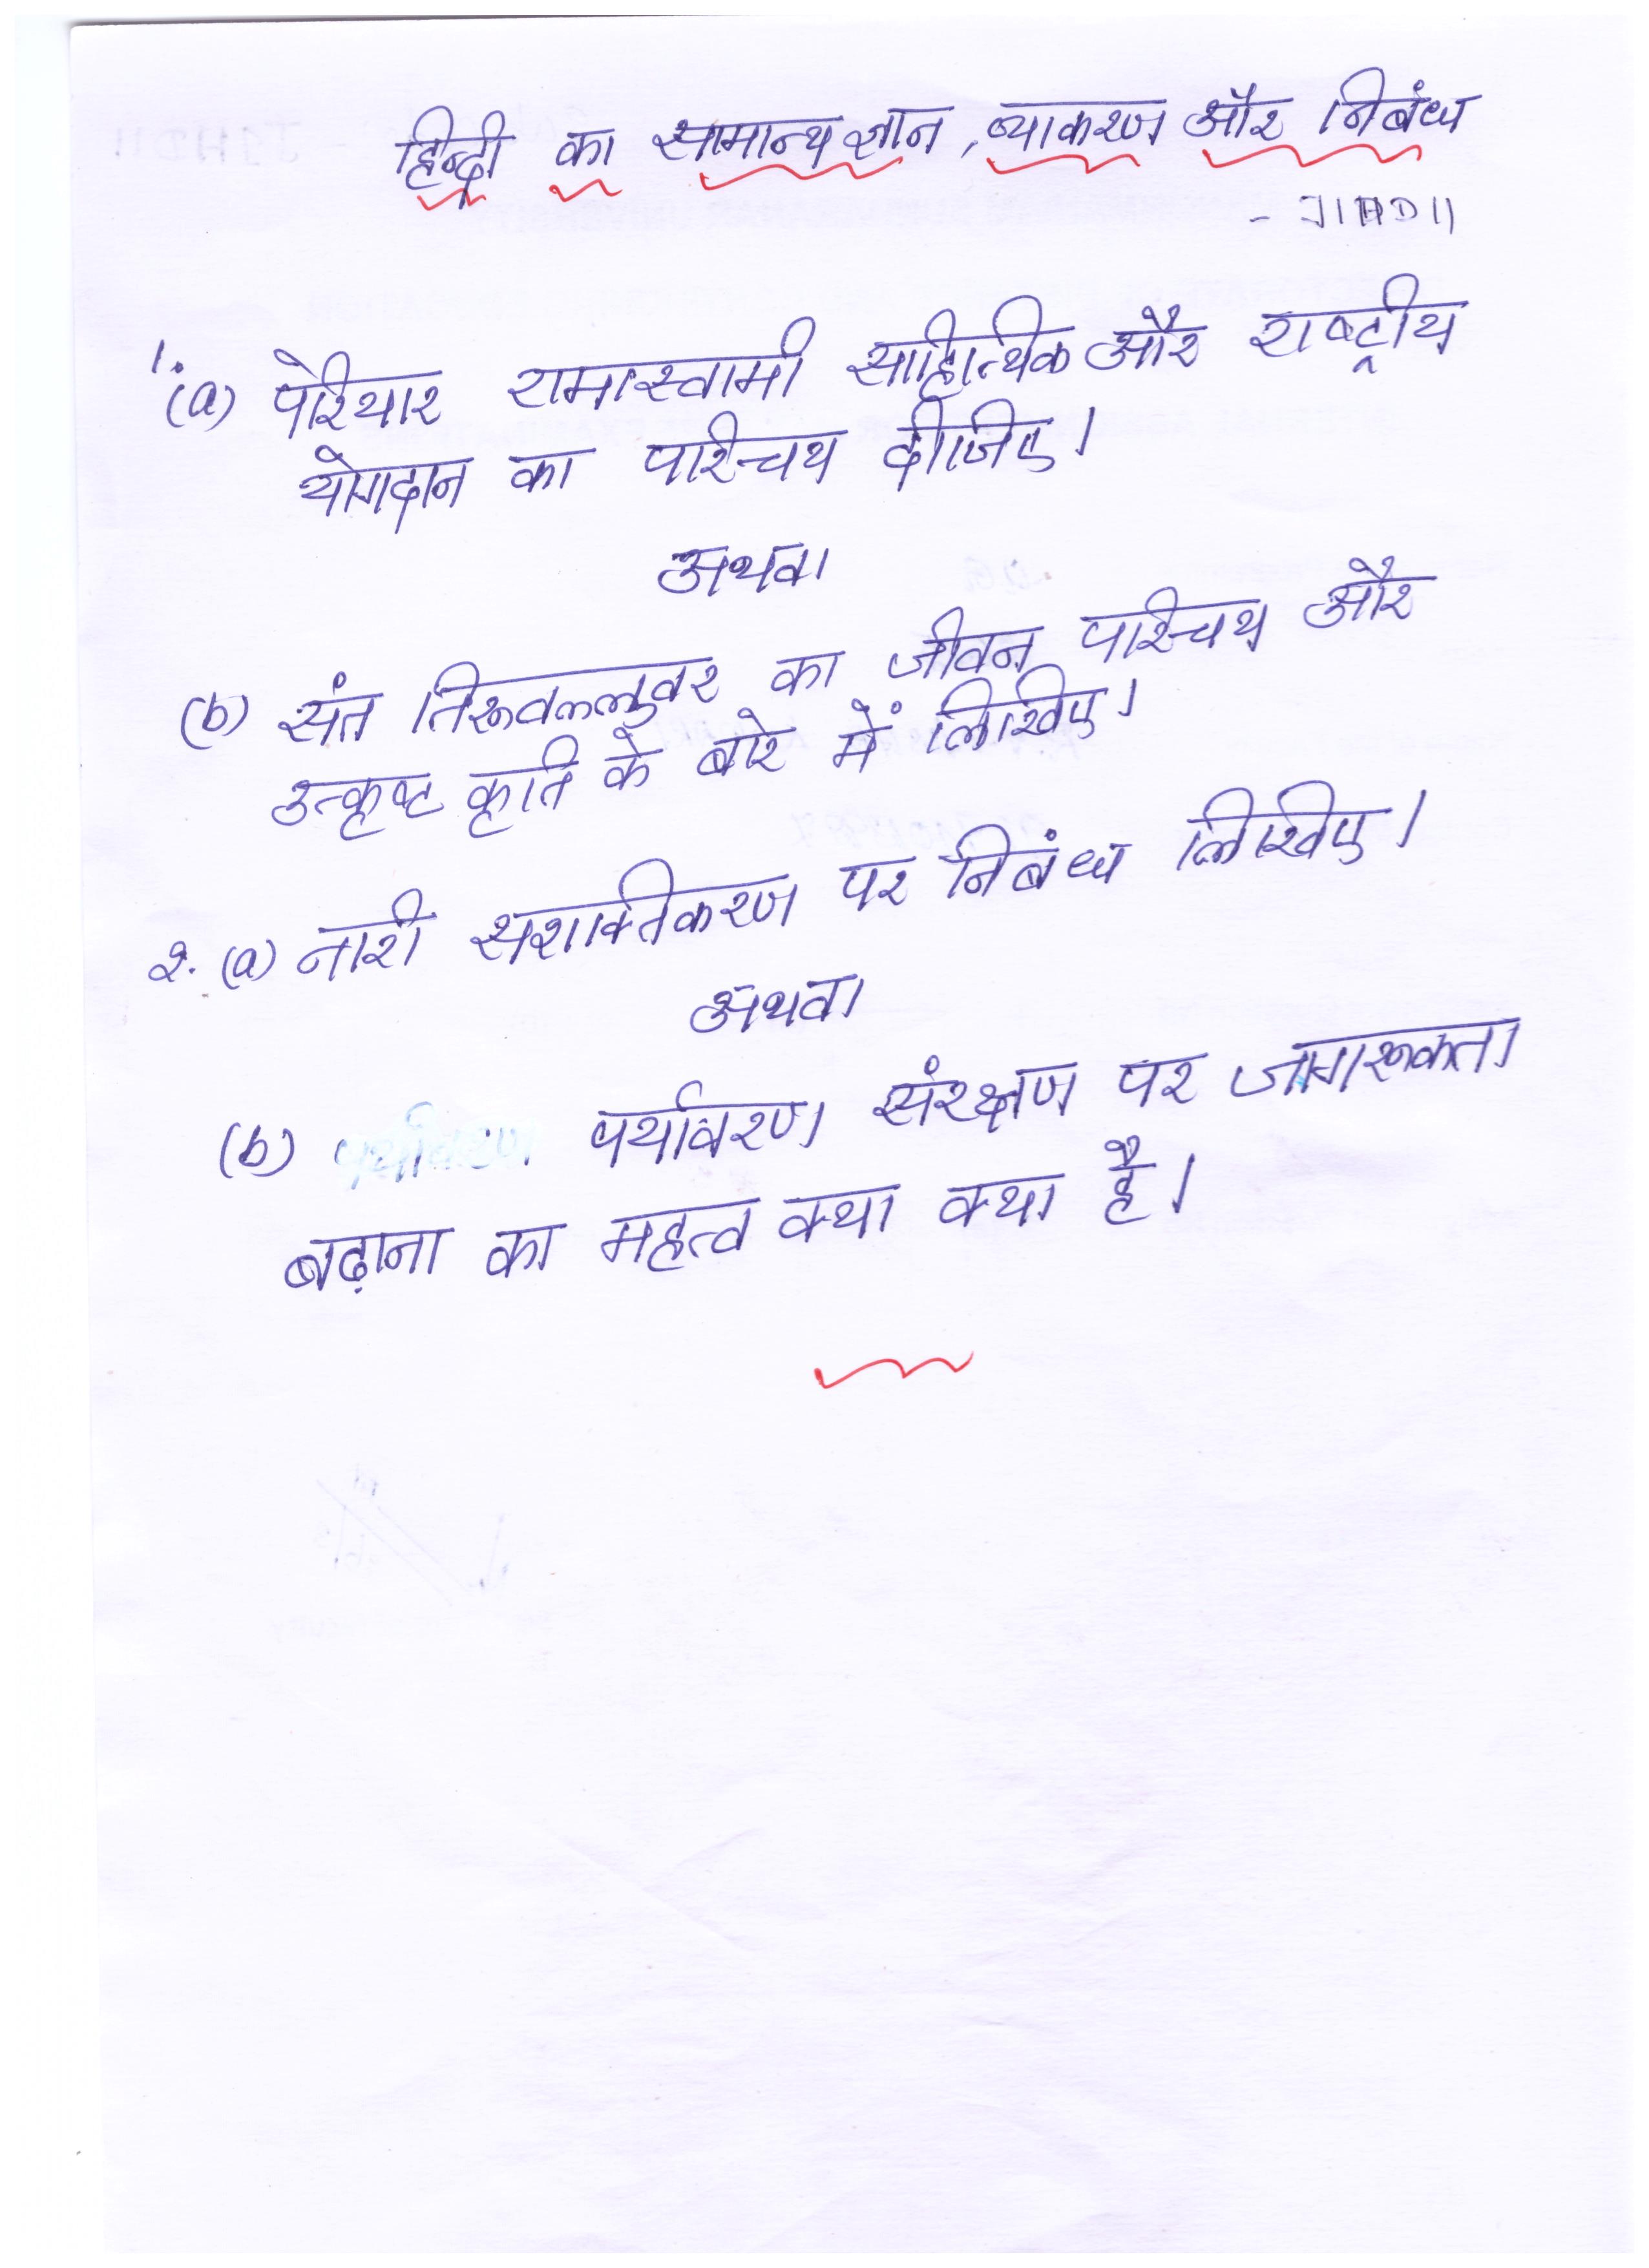 हिन्दी का सामान्य ज्ञान, व्याकरण और निबंध
- J1HD11
1.
(a) पेरियार रामास्वामी साहित्यिक और राष्ट्रीय
योगदान का परिचय दीजिए।
अथवा
(b) संत तिरूवल्लुवर का जीवन परिचय और
उत्कृष्ट कृति के बारे में लिखिए।
2. (a) नारी सशक्तिकरण पर निबंध लिखिए।
अथवा
(b) पर्यावरण संरक्षण पर जागरूकता
बढ़ाना का महत्व क्या क्या है।